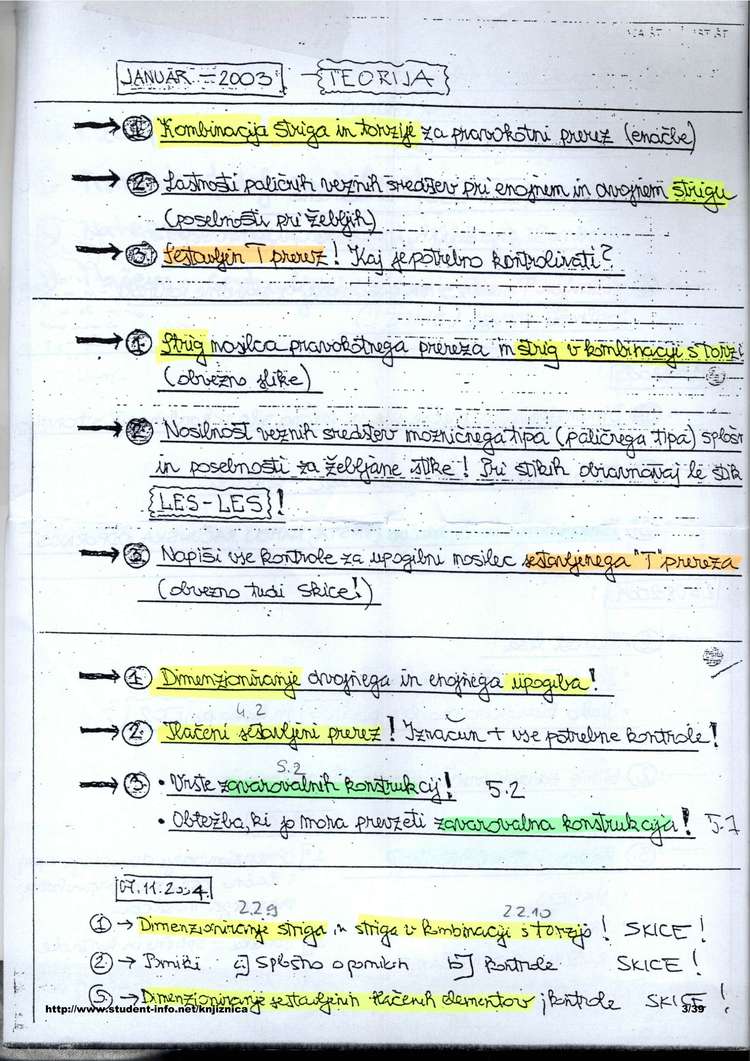 JANUAR - 2003 TEORIJA
→ ① Kombinacija striga in torzije za pravokotni prerez (enačbe)
→ ② Lastnosti paličnih veznih sredstev pri enojnem in dvojnem strigu
(posebnosti pri žebljih)
→ ③ Sestavljen T prerez! Kaj je potrebno kontrolirati?
→ ① Strig nosilca pravokotnega prereza in strig v kombinaciji s torzi
(obvezno slike)
→ ② Nosilnost veznih sredstev mozničnega tipa (paličnega tipa) splošn
in posebnosti za žebljane stike! Pri stikih obravnavaj le stik
LES-LES!
→ ③ Napiši vse kontrole za upogibni nosilec sestavljenega "T" prereza
(obvezno tudi skice!)
→ ① Dimenzioniranje dvojnega in enojnega upogiba!
4.2
→ ② Tlačeni sestavljeni prerez! Izračun + vse potrebne kontrole!
5.2
→ ③ • Vrste zavarovalnih konstrukcij! 5.2
• Obtežba, ki jo mora prevzeti zavarovalna konstrukcija! 5.1
11.2004.
2.2.9 2.2.10
① → Dimenzioniranje striga in striga v kombinaciji s torzijo! SKICE!
② → Pomiki a) splošno o pomikih b) kontrole SKICE!
③ → Dimenzioniranje sestavljenih tlačenih elementov; kontrole SKICE!
http://www.student-info.net/knjiznica 3/39